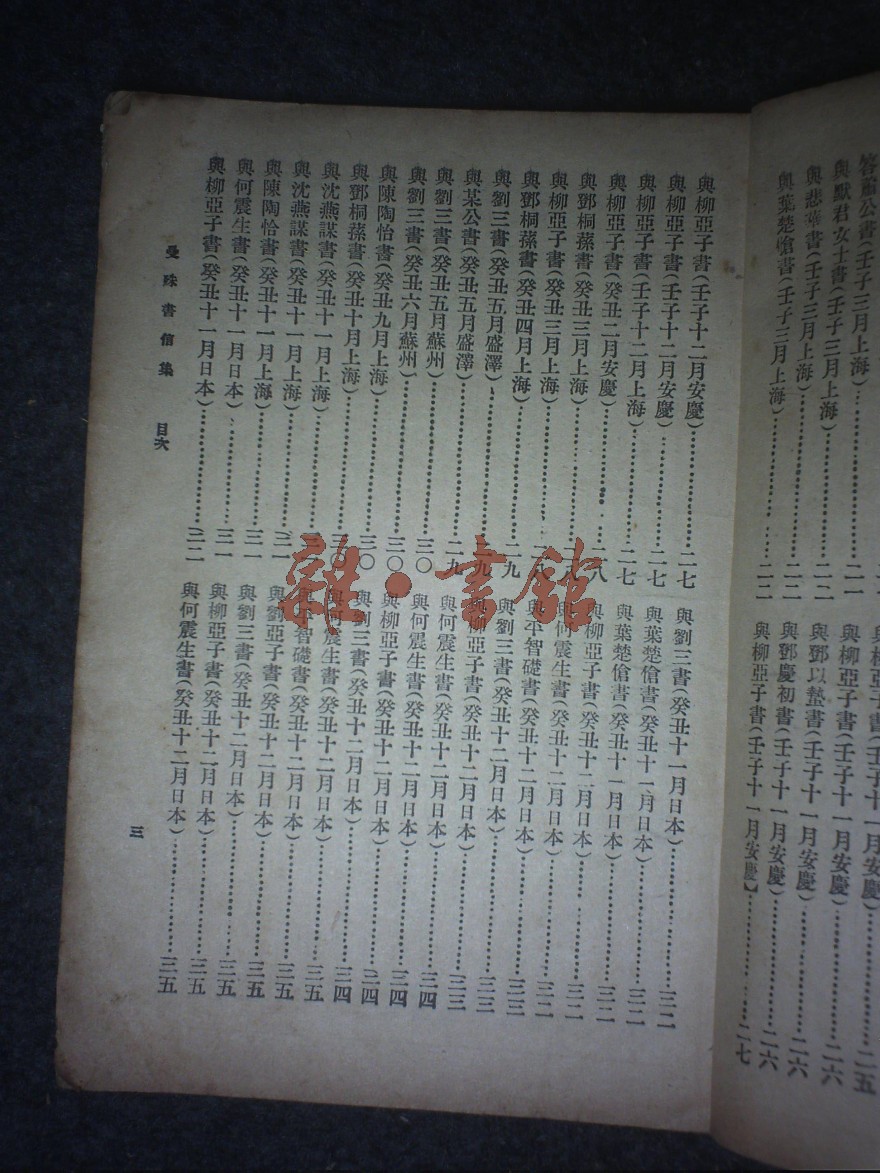 與柳亞子書(壬子十二月安慶)…………二七
與柳亞子書(壬子十二月安慶)…………二七
與柳亞子書(壬子十二月上海)…………二七
與柳亞子書(癸丑二月安慶)…………二八
與鄧桐蓀書(癸丑三月上海)…………二八
與柳亞子書(癸丑三月上海)…………二八
與鄧桐蓀書(癸丑四月上海)…………二九
與劉三書(癸丑五月盛澤)…………二九
與某公書(癸丑五月盛澤)…………二九
與劉三書(癸丑五月蘇州)…………三〇
與劉三書(癸丑六月蘇州)…………三〇
與陳陶怡書(癸丑九月上海)…………三〇
與鄧桐蓀書(癸丑十月上海)…………三〇
與沈燕謀書(癸丑十一月上海)…………
與沈燕謀書(癸丑十一月上海)…………三一
與陳陶怡書(癸丑十一月上海)…………三一
與何震生書(癸丑十一月日本)…………三一
與柳亞子書(癸丑十一月日本)…………三二
與劉三書(癸丑十一月日本)…………三二
與葉楚傖書(癸丑十一月日本)…………三二
與葉楚傖書(癸丑十一月日本)…………三二
與柳亞子書(癸丑十二月日本)…………三二
與何震生書(癸丑十二月日本)…………三二
與平智礎書(癸丑十二月日本)…………三三
與劉三書(癸丑十二月日本)…………三三
與柳亞子書(癸丑十二月日本)…………三三
與何震生書(癸丑十二月日本)…………三四
與柳亞子書(癸丑十二月日本)…………三四
與劉三書(癸丑十二月日本)…………三四
與何震生書(癸丑十二月日本)…………三四
與平智礎書(癸丑十二月日本)…………三五
與劉亞子書(癸丑十二月日本)…………三五
與劉三書(癸丑十二月日本)…………三五
與柳亞子書(癸丑十二月日本)…………三五
與何震生書(癸丑十二月日本)…………三五
曼殊書信集 目次
三
答蕭公書(壬子三月上海)…………二一
與默君女士書(壬子三月上海)…………二二
與悲華書(壬子三月上海)…………二二
與葉楚傖書(壬子三月上海)…………二二
與柳亞子書(壬子十一月安慶)…………二五
與柳亞子書(壬子十一月安慶)…………二六
與鄧以蟄書(壬子十一月安慶)…………二六
與鄧慶初書(壬子十一月安慶)…………二六
與柳亞子書(壬子十一月安慶)…………二七
雜·書館